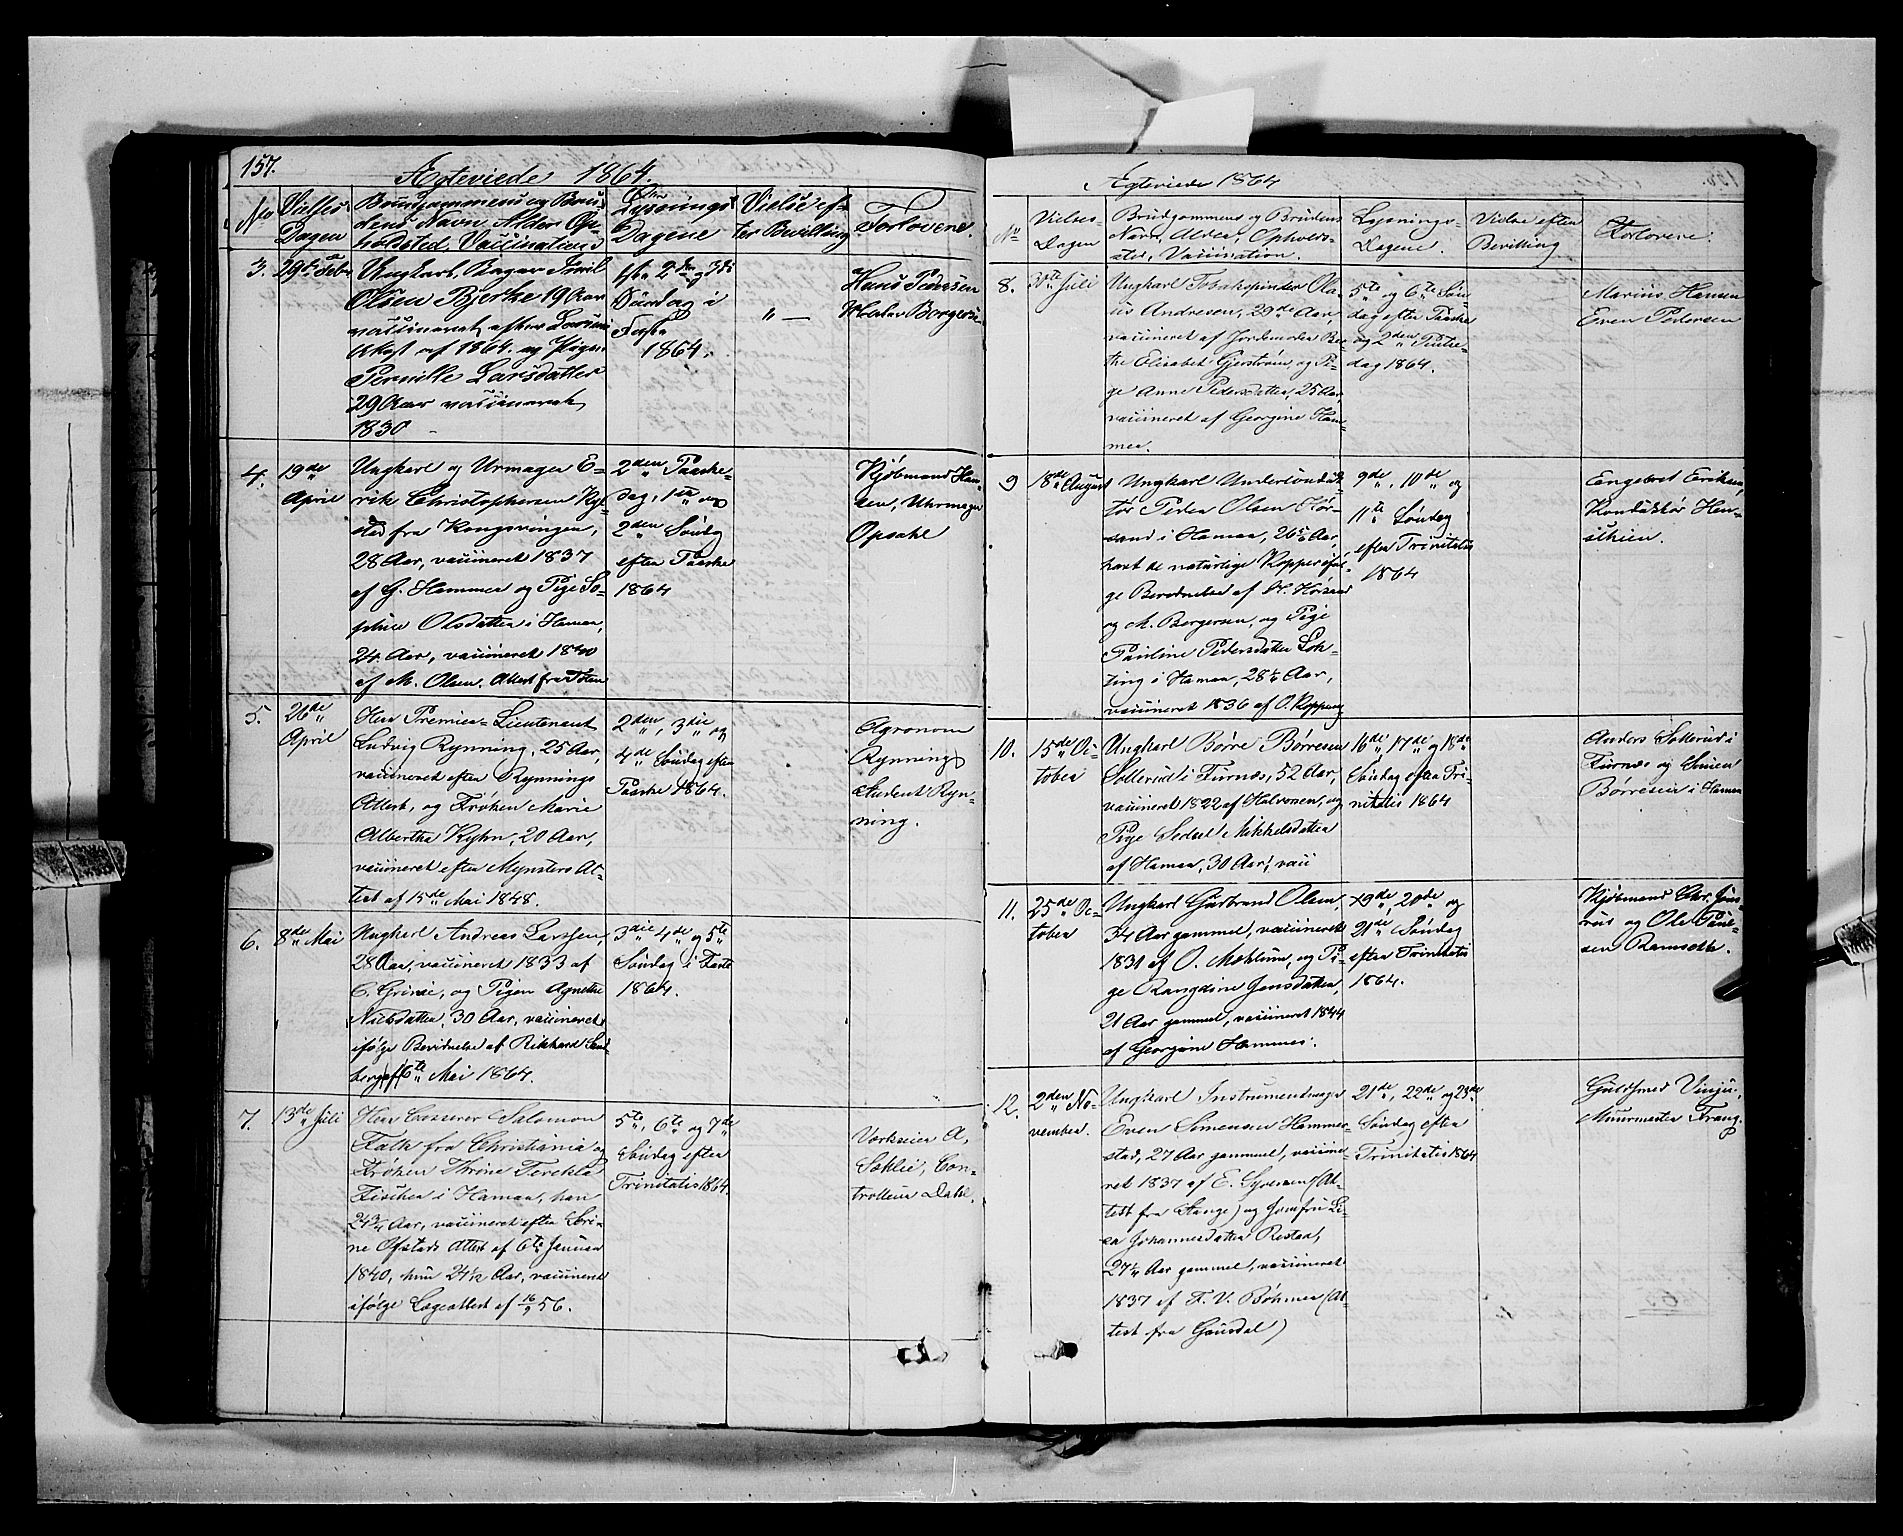 157.
Ægteviede 1864.
No
Vielses
Dagen
Brudgommens og Bru-
dens Navn, Alder Op-
holdsted Vaccination
Lysnings
Dagene
Vielse ef-
ter Bevilling
Forlovere.
3.
29de Feb.
Ungkarl, Bager Emil
Olsen Bjerke 19 Aar
vaccineret efter
af 1864. og Pige
Pernille Larsdatter
29 Aar vaccineret
1830
2den og 3die
Søndag i
Faste
1864.
" —
Hans Pedersen
Borgersen
4.
19de
April
Ungkarl og Urmager E-
rik Christophersen Ry-
stad fra Kongsvinger,
28 Aar, vaccineret 1837
af G. Hammer og Pige So-
phie Olsdatter i Hamar,
24 Aar, vaccineret 1840
af M. Olsen. Attest fra Toten
2den Paaske-
dag, 1ste og
2den Søndag
efter Paaske
1864
Kjøbmand Han-
sen, Uhrmager
Opsahl
5.
26de
April
Herr Premier-Lieutenant
Ludvig Rynning, 25 Aar,
vaccineret efter Rynnings
Attest, og Frøken Marie
Albertha Kyhn, 20 Aar,
vaccineret efter Mynsters At-
test af 15de Mai 1848.
2den, 3die og
4de Søndag efter
Paaske 1864.
Agronom
Rynning,
Student Ryn-
ning.
6.
8de Mai
Ungkarl Andreas Larssen,
28 Aar, vaccineret 1833 af
C. Grinie, og Pigen Agnethe
Nielsdatter, 30 Aar, vaccineret
ifølge Bevidnelse af Rikhard Sand-
berg af 6te Mai 1864.
3die 4de og 5te
Søndag i Faste
1864.
7.
13de Juli
Herr Casserer Salomon
Falk fra Christiania og
Frøken Thrine Therekla
Fischer i Hamar, han
24 3/4 Aar, vaccineret efter Seri-
ne Ofstads Attest af 6te Januar
1840, hun 24 1/2 Aar, vaccineret
ifølge Lægeattest af 16/9 56.
5te, 6te og 7de
Søndag efter
Trinitatis 1864.
Værkseier A.
Sohlie, Con-
trolleur Dahl.
Ægteviede 1864
No
Vielses-
Dagen
Brudgommens og Brudens
Navn, Alder, Opholds-
sted, Vaccination.
Lysnings-
Dagene.
Vielse efter
Bevilling
Forlovere.
8.
Juli
Ungkarl Tobakspinder Ola-
us Andresen, 29de Aar,
vaccineret af Jordemoder Be-
the Elisabet Gjerstrøm, og Pi-
ge Anne Pedersdatter, 25 Aar,
vaccineret af Georgine Ham-
mer.
5te og 6te Søn-
dag efter Paaske
og 2den Pintse-
dag 1864.
Marius Hansen
Even Pedersen
9
18de August
Ungkarl Underconduk-
tør Peder Olsen Hør-
sand i Hamar, 26 Aar,
havt de naturlige Kopper iføl-
ge Bevidnelse af H. Hørsand
og M. Borgersen, og Pige
Pauline Pedersdatter Løk-
ting i Hamar, 28 1/2 Aar,
vaccineret 1836 af O. Koppang
9de, 10de og
11te Søndag
efter Trinitatis
1864
Engebret Eriksen,
Konduktør Hen-
10.
15de Oc-
tober
Ungkarl Børre Børresen
Sollerud i Furnæs, 52 Aar,
vaccineret 1822 af Halvorsen, og
Pige Sedsel Mikkelsdatter
af Hamar, 30 Aar, vacc
16de, 17de og 18de
Søndag efter Tri-
nitatis 1864
Anders Sollerud i
Furnæs og Simen
Børresen i Hamar
11.
25de Oc-
tober
Ungkarl Gudbrand Olsen,
34 Aar gammel, vaccineret
1831 af O. Mæhlum, og Pi-
ge Rangdine Jensdatter,
21 Aar gammel, vaccineret 1844
af Georgine Hammer.
19de, 20de og
21de Søndag
efter Trinitatis
1864.
Kjøbmand Chr. Jens-
rud og Ole Paul-
sen Ramseth.
12.
2den No-
vember.
Ungkarl Instrumentmager
Even Simensen Hammer-
stad, 27 Aar gammel, vaccine-
ret 1837 af E. Syversen (At-
test fra Stange) og Jomfru Li-
sa Johannesdatter Restad,
27 1/4 Aar gammel, vaccineret
1837 af F. V. Bøhmer (At-
test fra Gausdal)
21de, 22de og 23de
Søndag efter
Trinitatis 1864
Guldsmed Vinju,
Muurmester Frang.